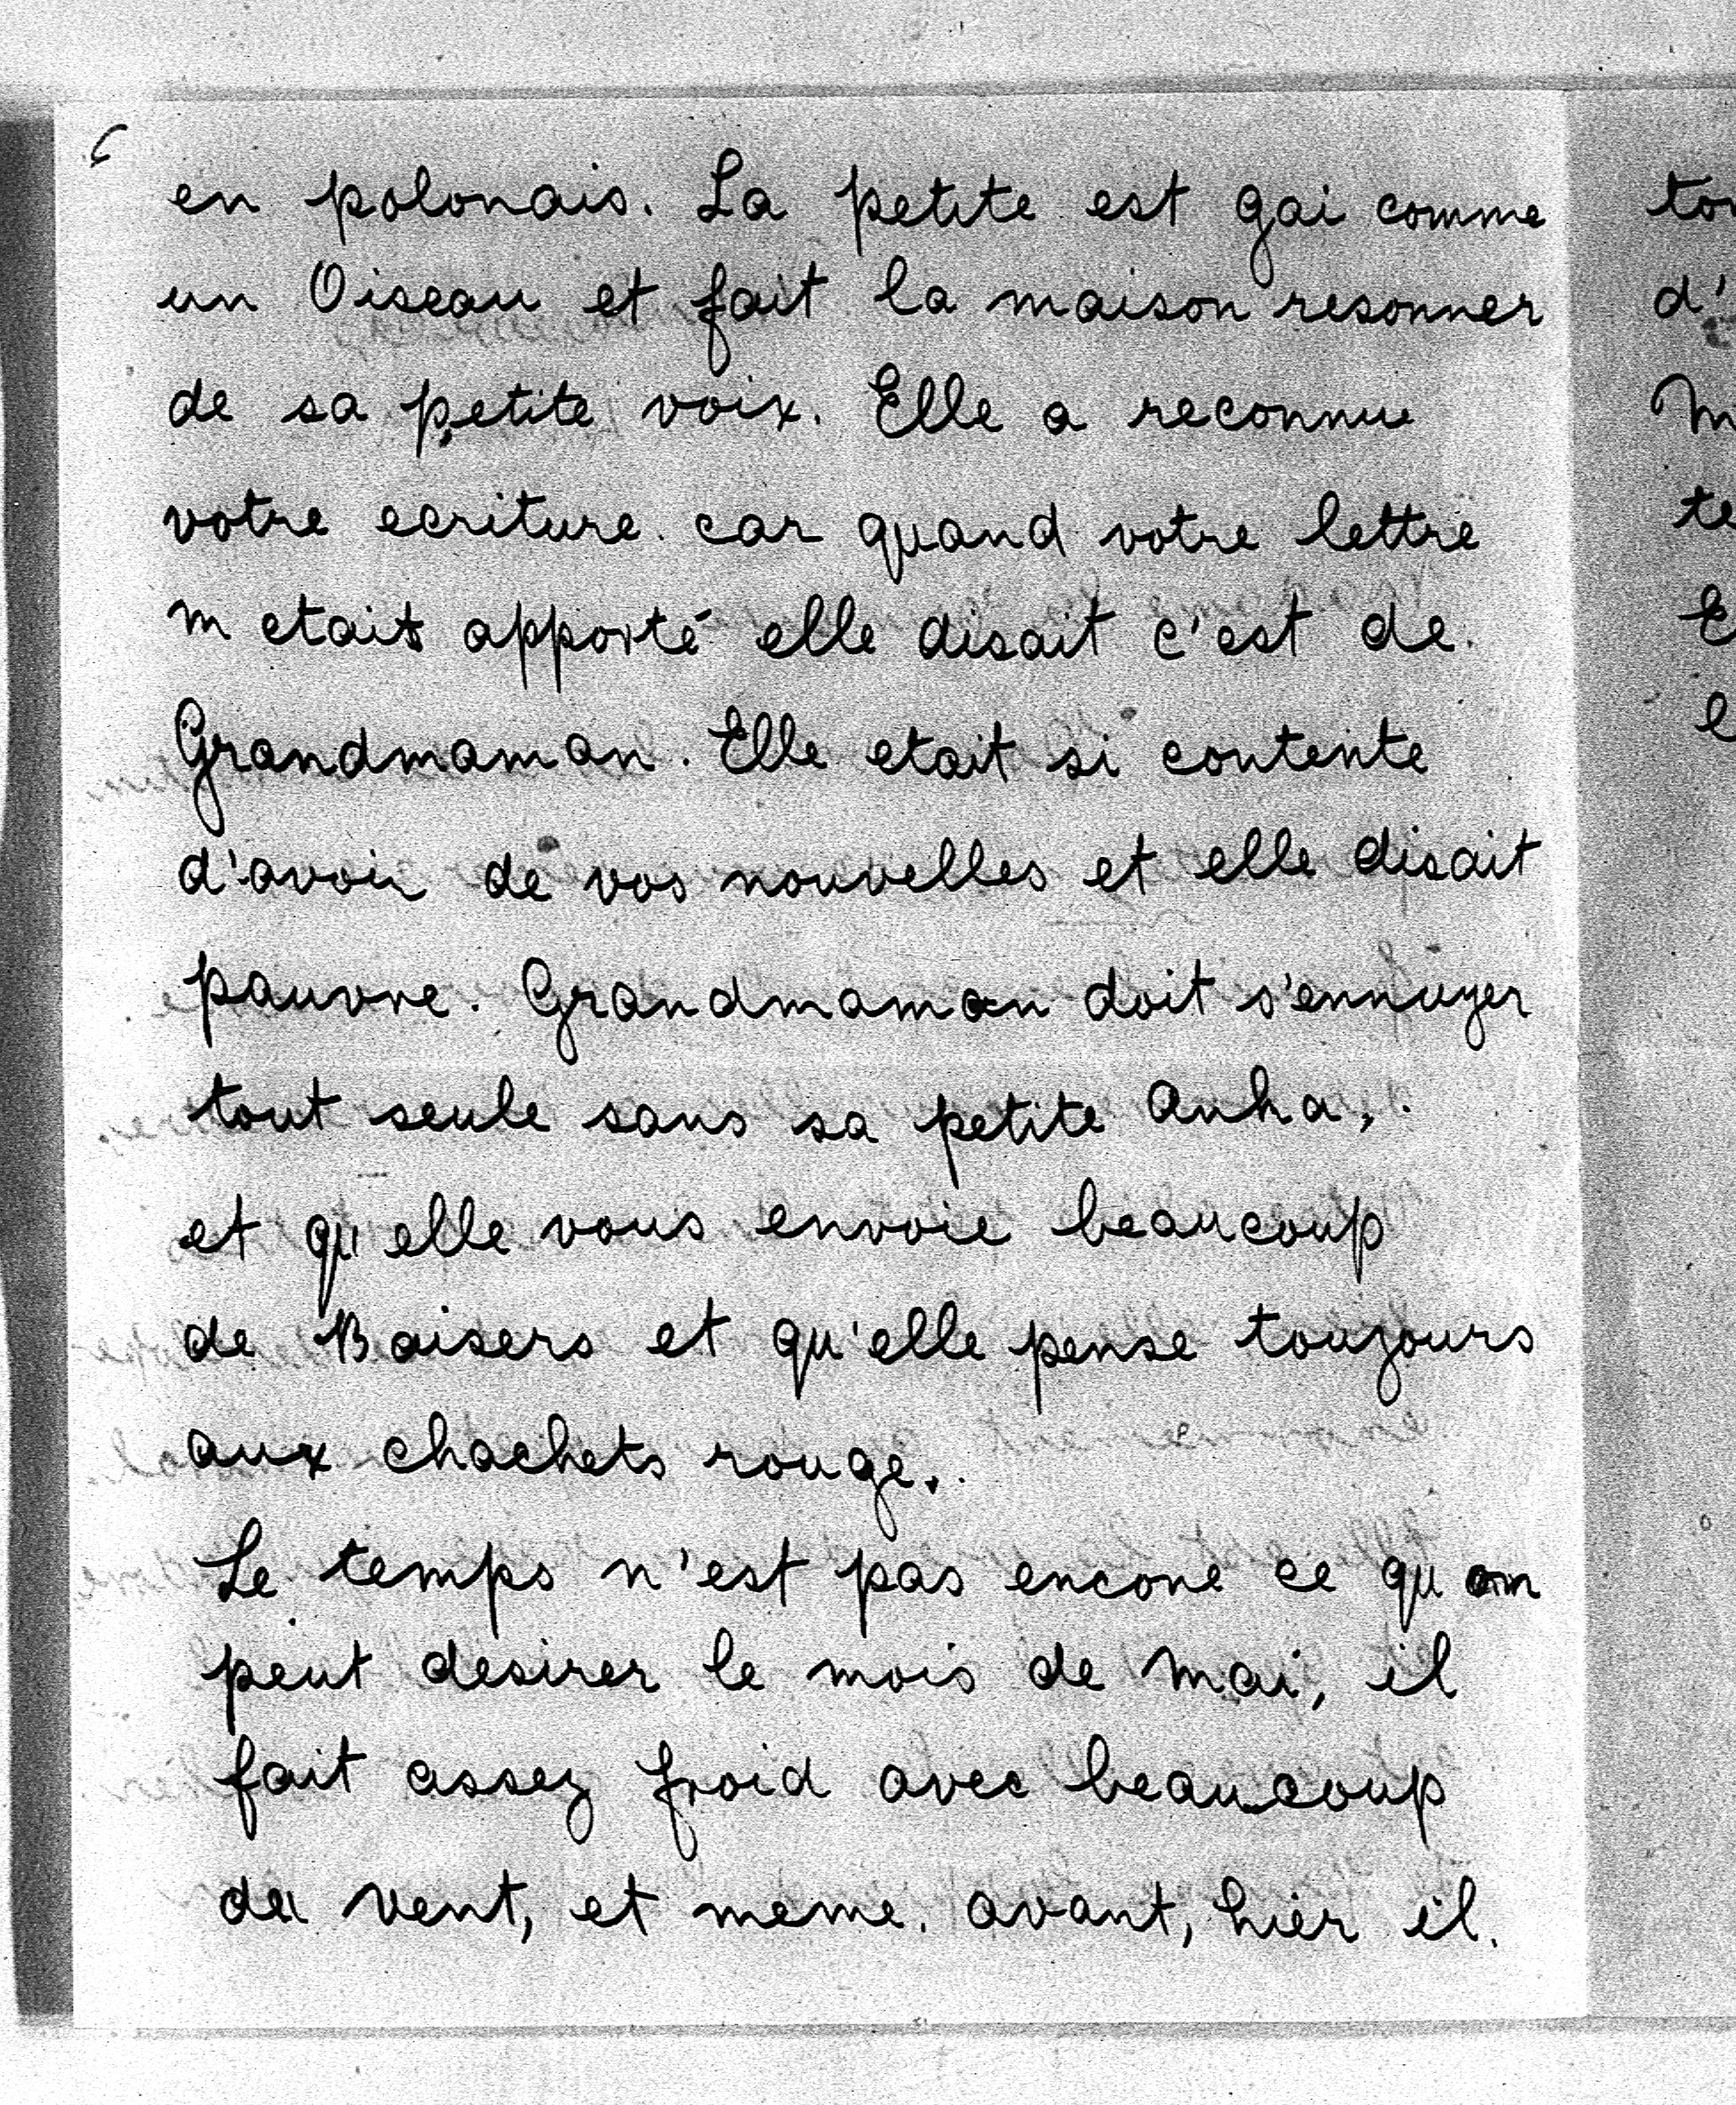 en polonais. La petite est gai comme
un Oiseau et fait la maison resonner
de sa petite voix. Elle a reconnue
votre ecriture. car quand votre lettre
m etait apporté elle disait c'est de.
Grandmaman. Elle etait si contente
d'avoir de vos nouvelles et elle disait
pauvre. Grandmaman doit s'ennuyer
tout seule sans sa petite Anha,.
et qu'elle vous envoie beaucoup
de Baisers et qu'elle pense toujours
aux chachets rouge.
Le temps n'est pas encore ce qu on
peut desirer le mois de Mai, il
fait assez froid avec beaucoup
de vent, et meme. avant, hier il.